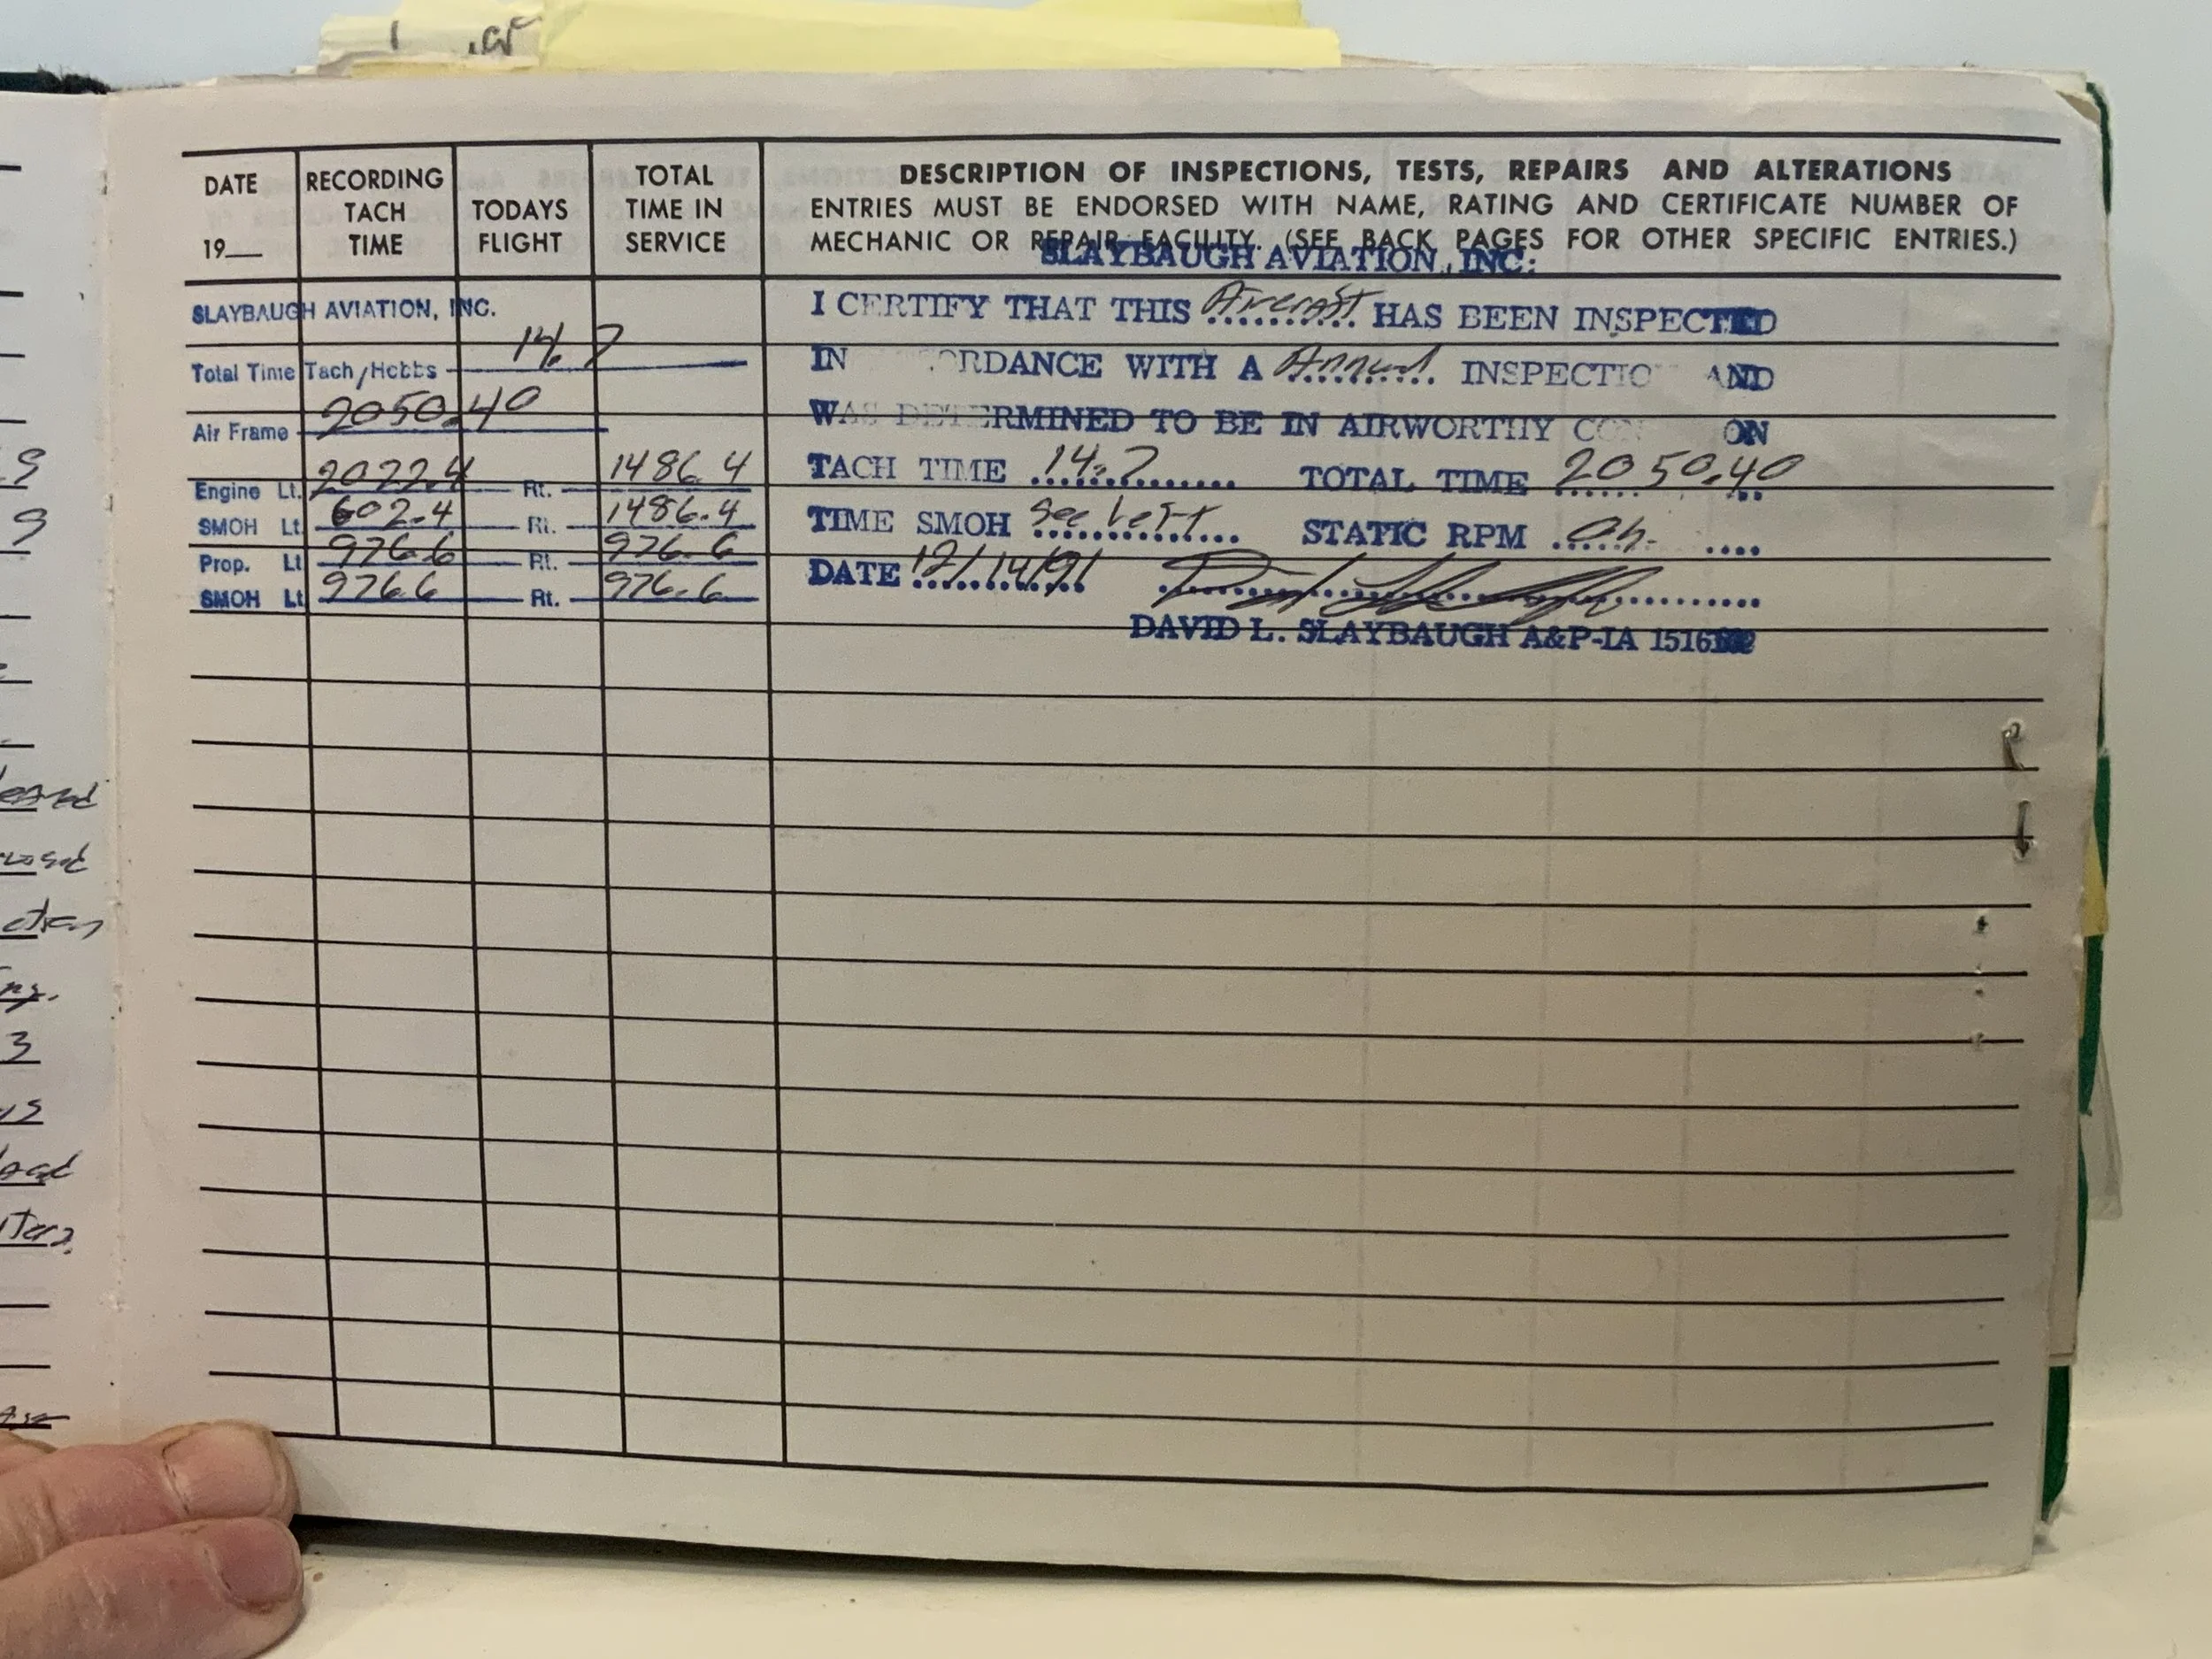 DATE
19__
RECORDING
TACH
TIME
TODAYS
FLIGHT
TOTAL
TIME IN
SERVICE
DESCRIPTION OF INSPECTIONS, TESTS, REPAIRS AND ALTERATIONS
ENTRIES MUST BE ENDORSED WITH NAME, RATING AND CERTIFICATE NUMBER OF
MECHANIC OR REPAIR FACILITY. (SEE BACK PAGES FOR OTHER SPECIFIC ENTRIES.)
SLAYBAUGH AVIATION, INC.
Total Time Tach/Hobbs 14.7
Air Frame 2050.40
Engine Lt. 2022.4 Rt. 1486.4
SMOH Lt. 602.4 Rt. 1486.4
Prop. Lt 976.6 Rt. 976.6
SMOH Lt 976.6 Rt. 976.6
SLAYBAUGH AVIATION, INC.
I CERTIFY THAT THIS Aircraft HAS BEEN INSPECTED
IN RDANCE WITH A Annual INSPECTIO AND
WAS DETERMINED TO BE IN AIRWORTHY CON ON
TACH TIME 14.7 TOTAL TIME 2050.40
TIME SMOH see left STATIC RPM
DATE 12/14/91
DAVID L. SLAYBAUGH A&P-IA